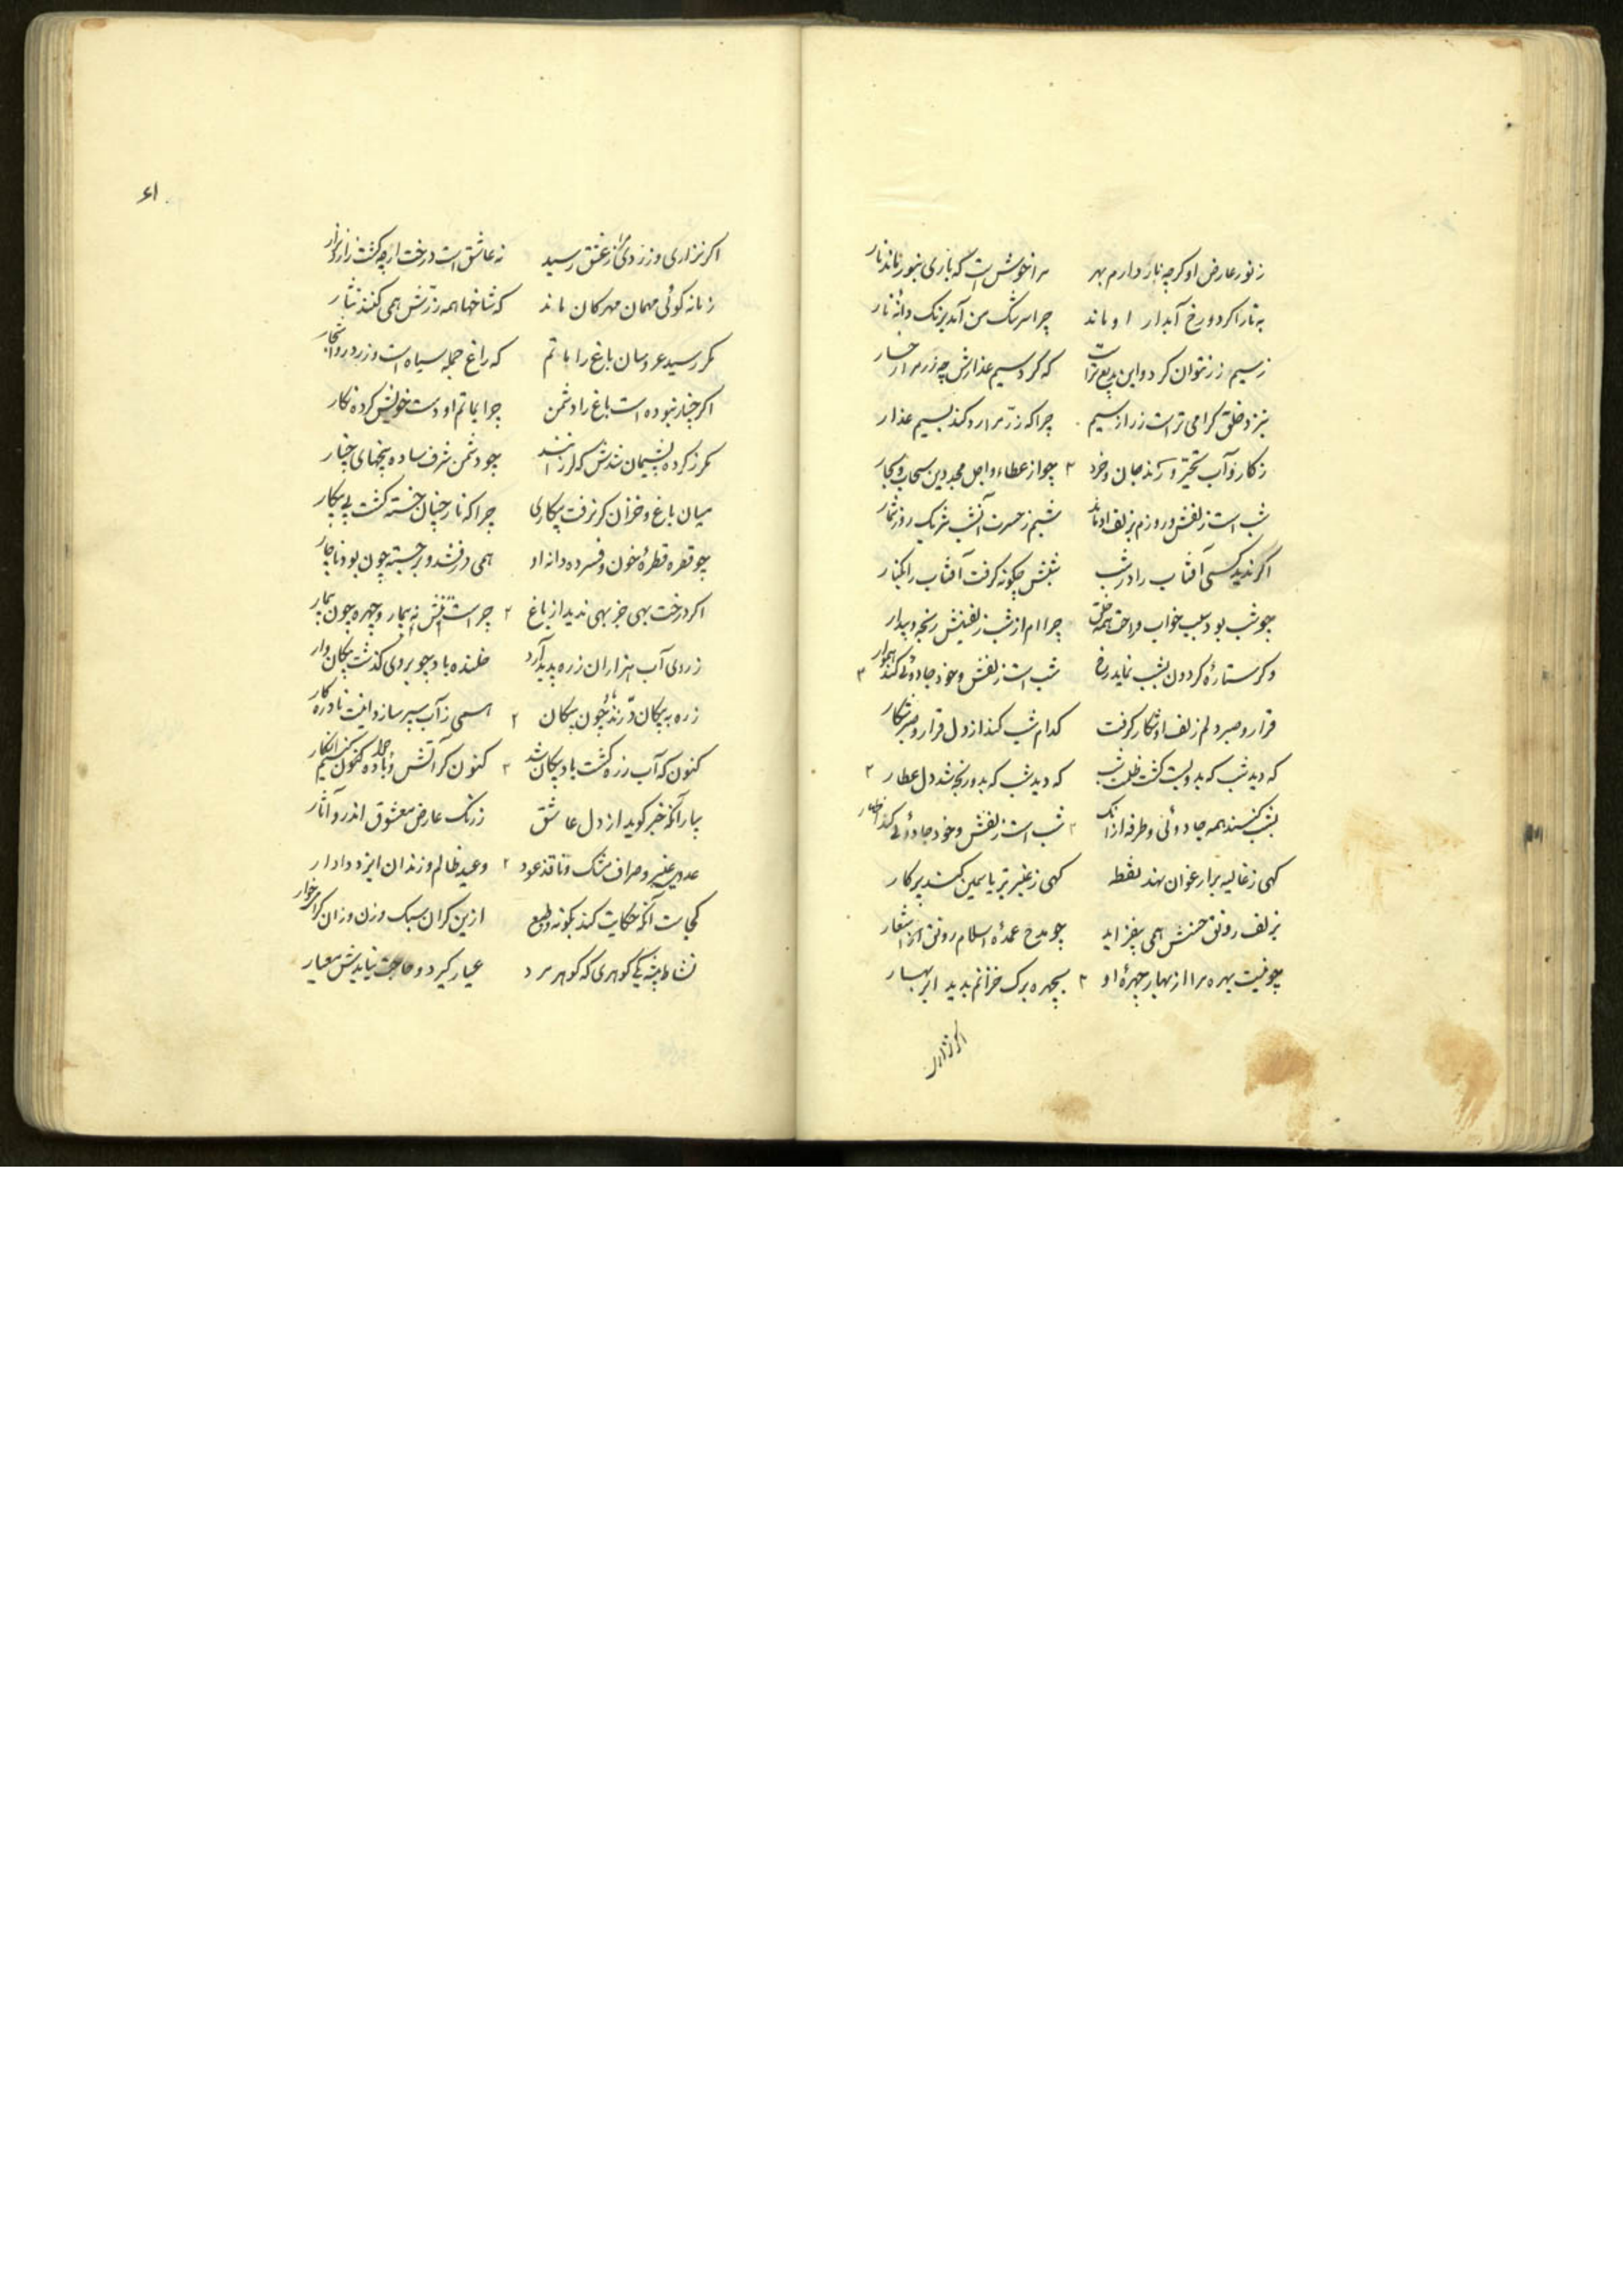 ز نور عارض او کرچه نار دارم بهر مرا خوشست که باری بنور ماند نار
به نار اکر دو رخ آبدار او ماند چرا سرشک من آمد برنک دانه نار
ز سیم زر نتوان کرد و این بدیع تراست که کرد سیم عذارش چو زر مرا رخسار
بنزد خلق کرامی تر است زر از سیم چرا که زر مرا رد کند بسیم عذار
شب است زلفش و روزم بزلف او ماند شبم ز حسرت آن شب شریک روز شمار
اکر ندید کسی آفتاب را در شب شبش چکونه کرفت آفتاب را بکنار
چو شب بود سبب خواب و راحت همه خلق چرا ام از شب زلفینش رنجه و بیدار
وکر ستاره کردون بشب نماید رخ شب است زلفش و خود جادوئی کند هموار
قرار و صبر دلم زلف او شکار کرفت کدام شب کند از دل قرار و صبر شکار
که دید شب که بدو پست کشت ظلمت شب که دید شب که بدو رنجه شد دل عطار
بشب کنند همه جادوئی و طرفه از آنک شب است زلفش و خود جادوئی کند اظهار
کهی ز غالیه بر ارغوان نهد نقطه کهی ز عنبر بر یاسمین کشد پرکار
بزلف رونق حسنش همی بیفزاید چو مدح عمده اسلام رونق اشعار
چو نیست بهره مرا از بهار چهره او بچهره برک خزانم بدیده ابر بهار
اکر نزاری
۶۱
اکر نزاری و زردی ز عشق رسید نه عاشق است درخت ارچه کشت زرد و نزار
زمانه کوئی مهمان مهرکان ماند که شاخها همه زرش همی کنند نثار
مکر رسید عروسان باغ را ماتم که راغ جمله سیاه است و زرد رو اشجار
اکر چنار نبوده است باغ را دشمن چرا بماتم او دست خویش کرده نکار
مکر ز کرده پشیمان شدش که لرزانند چو دشمن شرف ساده پنجهای چنار
میان باغ و خزان کر نرفت پیکاری چرا که نار چنان خسته کشت بی پیکار
چو قطره قطره خون و فسرده دانه او همی درفشد و برجسته چون بود ناچار
اکر درخت بهی جز بهی ندید از باغ چراست نفس نه بیمار و چهره چون بیمار
ز روی آب هزاران زره پدید آرد خلنده باد چو بروی کذشت پیکان وار
زره به پیکان درند چون پیکان همی ز آب سپر سازد اینت نادره کار
کنون که آب زره کشت باد پیکان شد
بیار آنکه خبر کوید از دل عاشق ز رنک عارض معشوق اندرو آثار
عدیل عنبر و صراف مشک و ناقد عود وعید ظالم و زندان ایزد دادار
کجاست آنکه حکایت کند بکونه و طبع ازین کران سبک وزن و زان کرامی خوار
کوهری که کوهر مرد عیار کیرد و حاجت نیایدش معیار